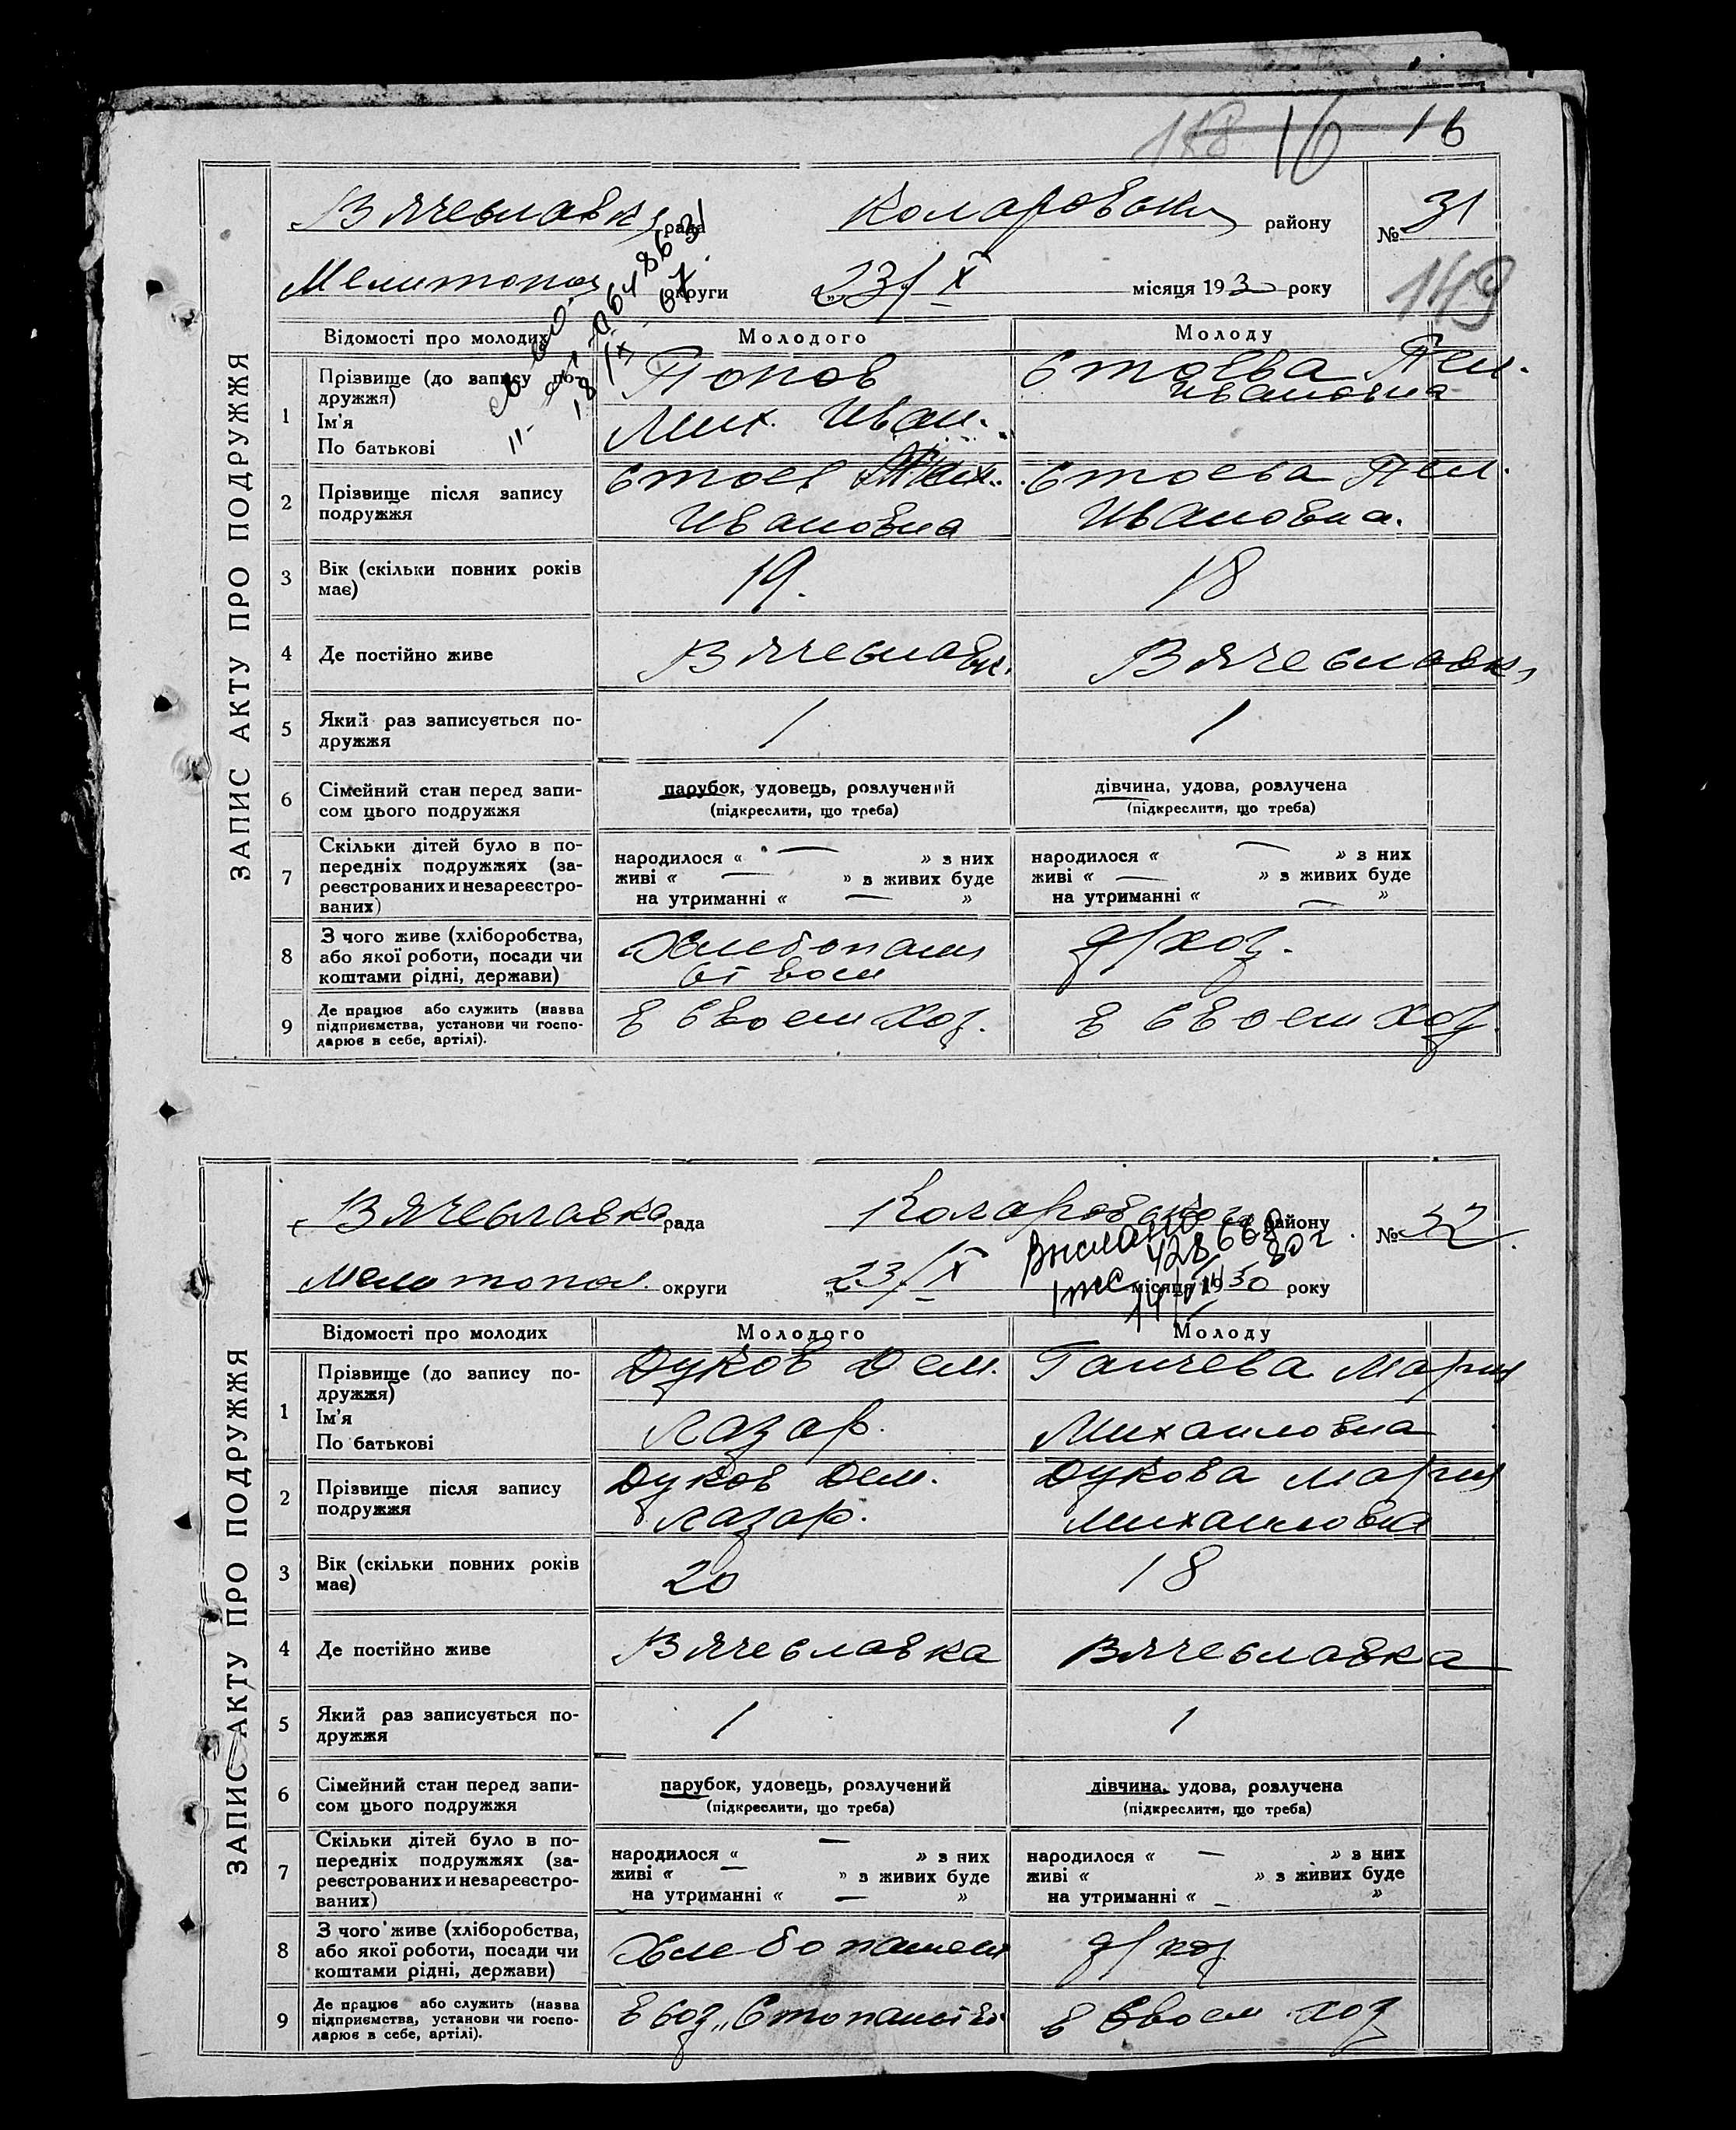 16 16
ЗАПИС АКТУ ПРО ПОДРУЖЖЯ
Вячеславк рада Коларовськ району № 31
Мелитопол округи „23/X місяця 1930 року
149
Відомості про молодих Молодого Молоду
1 Прізвище (до запису по-
дружжя)
Ім'я
По батькові
Попов
Мих. Иван.
Стоева Пел.
Ивановна
2 Прізвище після запису
подружжя
Стоев
Ивановна
Стоева Пел.
Ивановна.
3 Вік (скільки повних років
має)
19. 18
4 Де постійно живе Вячеславк. Вячеславк,
5 Який раз записується по-
дружжя
1 1
6 Сімейний стан перед запи-
сом цього подружжя
парубок, удовець, розлучений
(підкреслити, що треба)
дівчина, удова, розлучена
(підкреслити, що треба)
7 Скільки дітей було в по-
передніх подружжях (за-
реєстрованих и незареєстро-
ваних)
народилося « — » з них
живі « — » з живих буде
на утриманні « — »
народилося « — » з них
живі « — » з живих буде
на утриманні « — »
8 З чого живе (хліборобства,
або якої роботи, посади чи
коштами рідні, держави)
д/хоз.
9 Де працює або служить (назва
підприємства, установи чи госпо-
дарює в себе, артілі).
в своем хоз. в своем хоз.
ЗАПИС АКТУ ПРО ПОДРУЖЖЯ
Вячеславка рада Коларовського району № 32.
Мелитопол. округи „23/X місяця 1930 року
Выслано
428668
Відомості про молодих Молодого Молоду
1 Прізвище (до запису по-
дружжя)
Ім'я
По батькові
Дуков Дем.
Лазар.
Ганчева Мария
Михаиловна
2 Прізвище після запису
подружжя
Дуков Дем.
Лазар.
Дукова Мария
Михаиловна
3 Вік (скільки повних років
має)
20 18
4 Де постійно живе Вячеславка Вячеславка
5 Який раз записується по-
дружжя
1 1
6 Сімейний стан перед запи-
сом цього подружжя
парубок, удовець, розлучений
(підкреслити, що треба)
дівчина, удова, розлучена
(підкреслити, що треба)
7 Скільки дітей було в по-
передніх подружжях (за-
реєстрованих и незареєстро-
ваних)
народилося « — » з них
живі « — » з живих буде
на утриманні « — »
народилося « — » з них
живі « — » з живих буде
на утриманні « — »
8 З чого живе (хліборобства,
або якої роботи, посади чи
коштами рідні, держави)
д/хоз
9 Де працює або служить (назва
підприємства, установи чи госпо-
дарює в себе, артілі).
в своем хоз